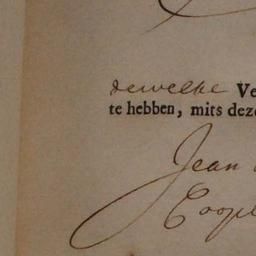 dewelke Ve
te hebben, mits deze
Jean
Coope